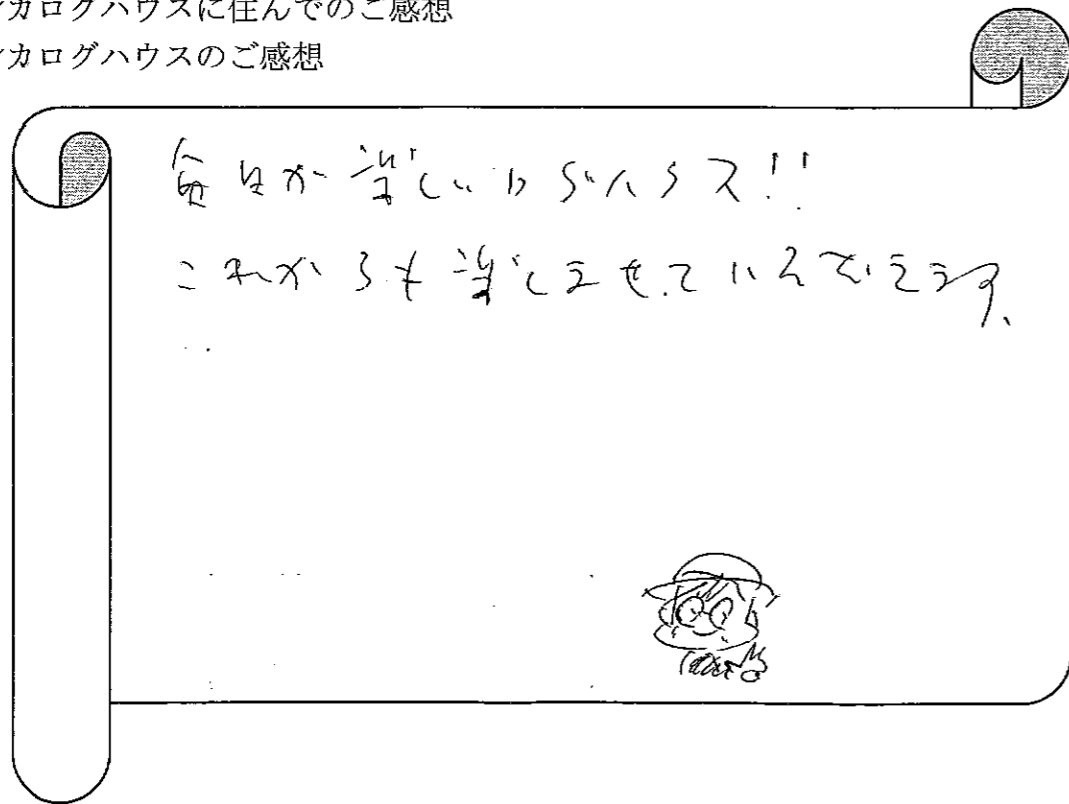 カログハウスに住んでのご感想
カログハウスのご感想
毎日が楽しいログハウス!!
これからも楽しませていただきます。